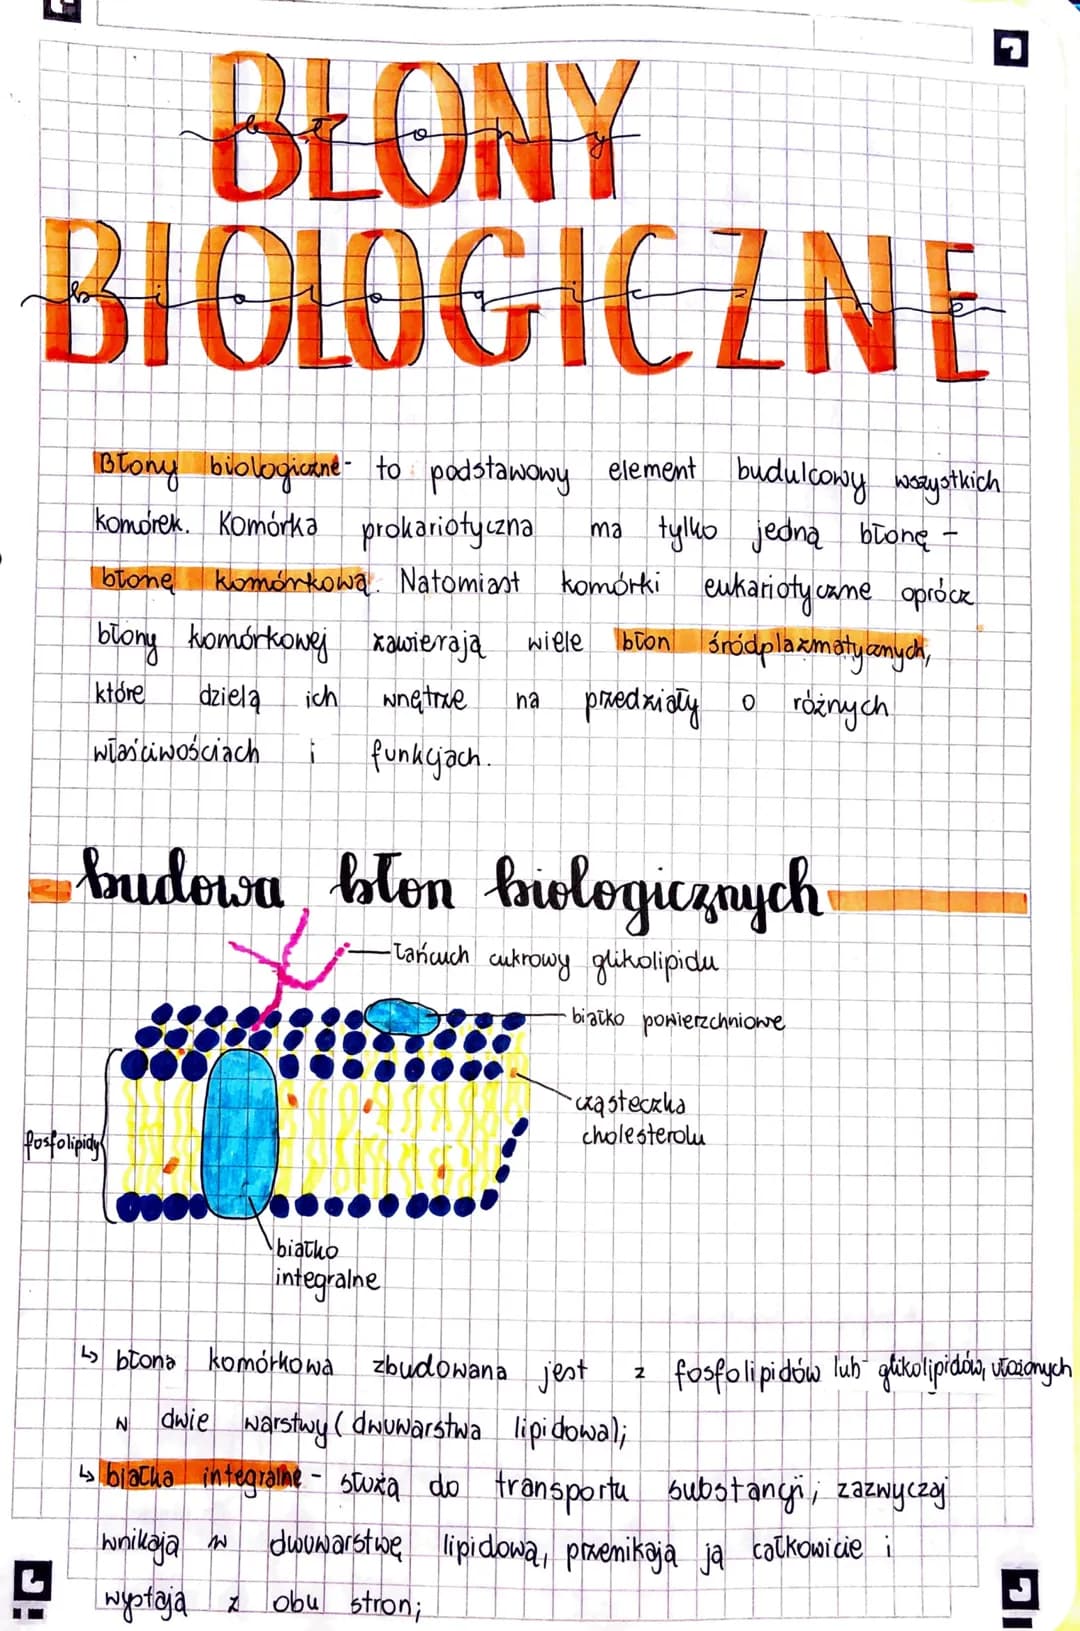 BŁONY
BIOLOGICZNE
Błony biologiczne- to podstawowy element budulcowy wszystkich
komórek. Komórka prokariotyczna ma tylko jedną błonę -
błonę komórkową. Natomiast komórki eukariotyczne oprócz
błony komórkowej zawierają wiele błon śródplazmatycznych,
które dzielą ich wnętrze na przedziały o różnych
właściwościach i funkcjach.
budowa błon biologicznych
łańcuch cukrowy glikolipidu
białko powierzchniowe
cząsteczka
cholesterolu
fosfolipidy
białko
integralne
↳ błona komórkowa zbudowana jest z fosfolipidów lub glikolipidów, ułożonych
w dwie warstwy (dwuwarstwa lipidowa);
↳ białka integralne - służą do transportu substancji; zazwyczaj
wnikają w dwuwarstwę lipidową, przenikają ją całkowicie i
wystają z obu stron;